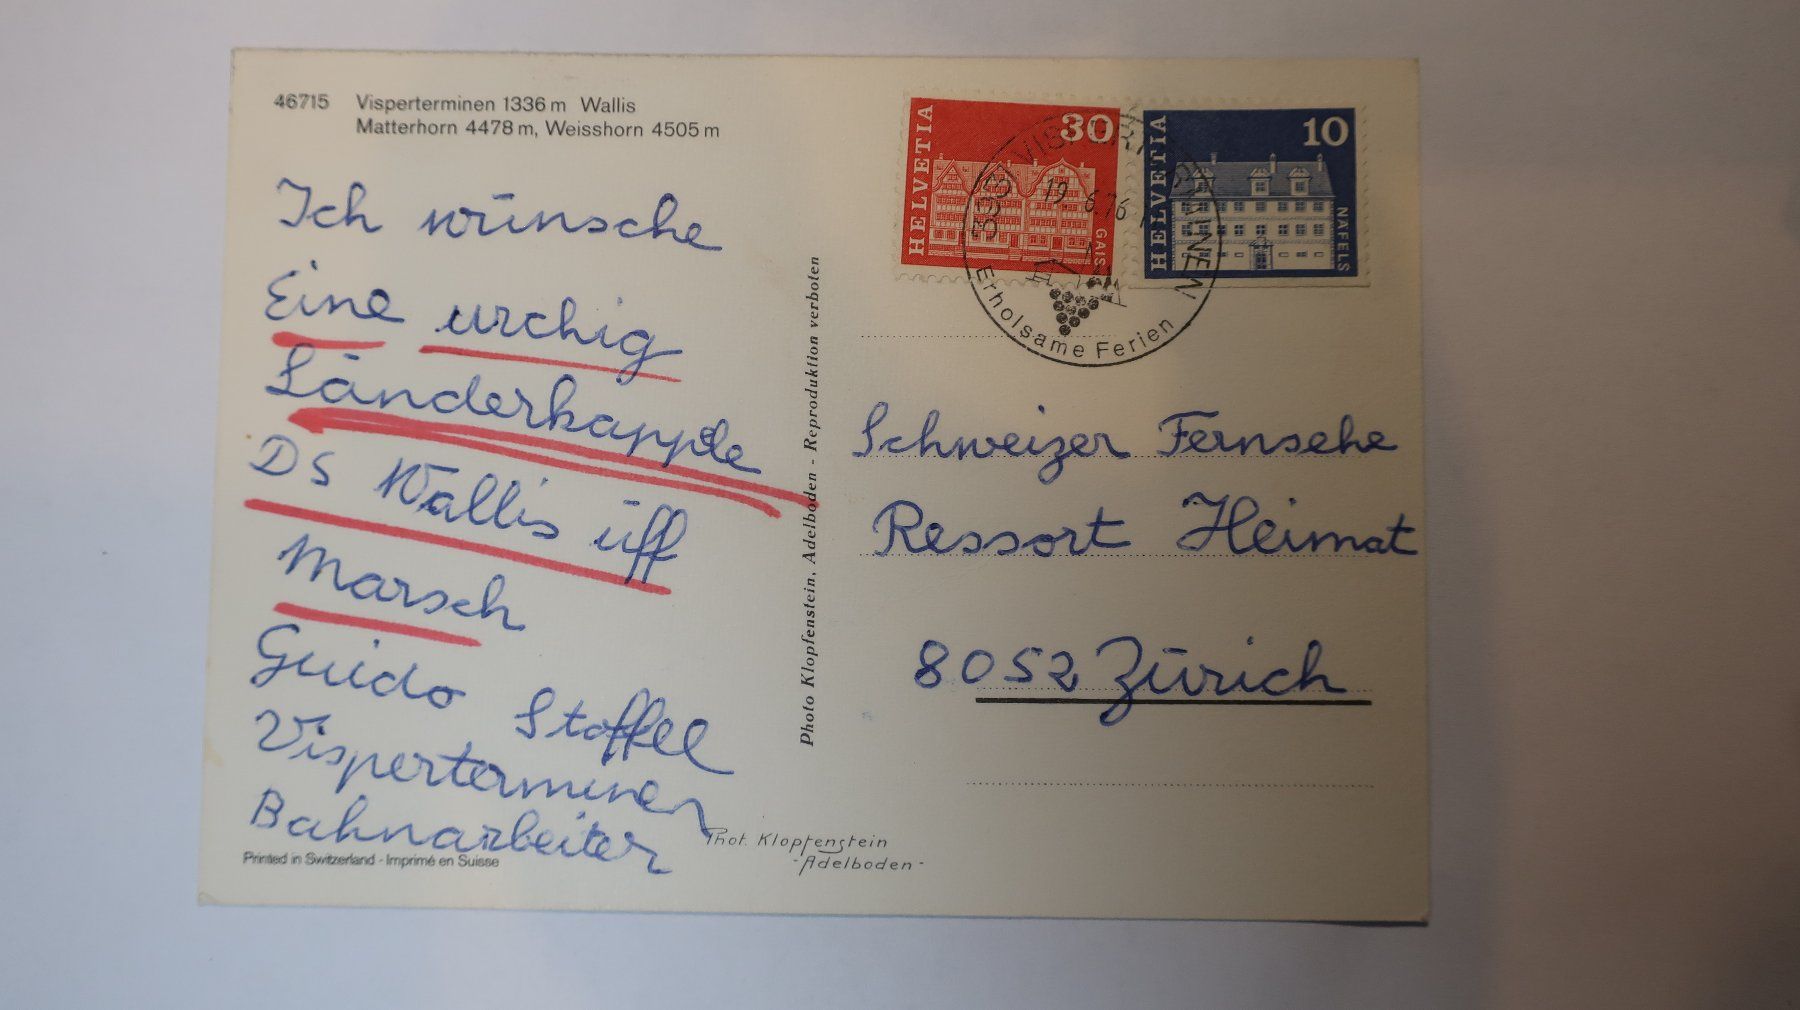 46715 Visperterminen 1336 m Wallis
Matterhorn 4478 m, Weisshorn 4505 m
Ich wünsche
Eine urchig
Länderkapple
Ds Wallis üff
Marsch
Guido Stoffel
Visperterminen
Bahnarbeiter
Printed in Switzerland - Imprimé en Suisse
Phot. Klopfenstein
- Adelboden -
Photo Klopfenstein, Adelboden - Reproduktion verboten
HELVETIA
30
GAIS
HELVETIA
10
NÄFELS
19. 6.76
Erholsame Ferien
Schweizer Fernsehe
Ressort Heimat
8052 Zürich